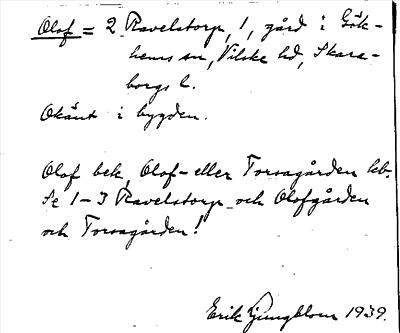 Olof = 2 Ravelstorp, 1, gård i Gök-
hems sn, Vilske hd, Skara-
borgs l.
Okänt i bygden.
Olof bek. Olof- eller Torsagården leb.
Se 1-3 Ravelstorp och Olofgården
och Torsagården!
Erik Ljungblom 1939.